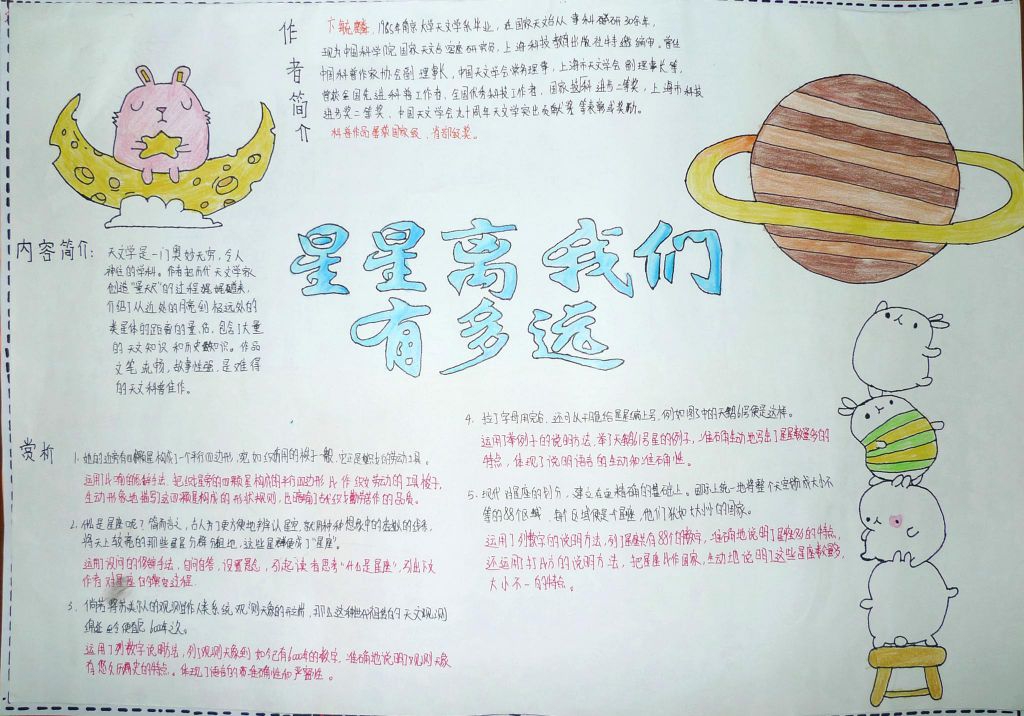 作者简介
卞毓麟, 1965年南京大学天文学系毕业, 在国家天文台从事科研30余年,
现为中国科学院国家天文台客座研究员, 上海科技教育出版社特邀编审。曾任
中国科普作家协会副理事长, 中国天文学会常务理事, 上海市天文学会副理事长等,
曾获全国先进科普工作者、全国优秀科技工作者、国家技科进步二等奖, 上海市科技
进步奖二等奖、中国天文学会九十周年天文学突出贡献奖等表彰或奖励。
科普作品屡获国家级, 省部级奖。
星星离我们
有多远
内容简介:
天文学是一门奥妙无穷, 令人
神往的学科。作者把历代天文学家
创造"量天尺"的过程娓娓道来,
介绍了从近处的月亮到极远处的
类星体的距离的量, 包含了大量
的天文知识和历史知识。作品
文笔流畅, 故事性强, 是难得
的天文科普佳作。
赏析
1. 她的边旁有四颗星构成了一个平行四边形, 宛如织布用的梭子一般, 它正是织女的劳动工具。
运用比喻的修辞手法, 把织女星旁的四颗星构成的平行四边形比作织女劳动的工具梭子,
生动形象地描写这四颗星构成的形状规则, 且
的品质。
2. 什么是星座呢? 简而言之, 古人为了更方便地判辨认星空, 就用种种想象中的
将天上较亮的那些星星分群组地, 这些星群便成了"星座"。
运用设问的修辞手法, 自问自答, 设置悬念, 引起读者思考"什么是星座", 引出下文
作者对星座的
过程.
3. 倘若将苏美尔人的观测
系统观测天象的开始, 那么这种
的天文观测
绵延至今便已6000年之久。
运用了列数字说明方法, 列了观测天象到如今已有6000年的数字, 准确地说明了观测天象
有悠久历史的特点。体现了语言的准确性和严密性。
4. 拉丁字母用完后, 还可以
给星星编上号, 例如图3中的天鹅61号便是这样。
运用了举例子的说明方法, 举了天鹅61号星的例子, 准确生动地写出了星星数量多的
特点, 体现了说明语言的生动和准确性。
5. 现代对星座的划分, 建立在更精确的基础上。国际上统一地将整个天空
成大小不
等的88个区域, 每个区域便是个星座, 他们犹如大小不一的国家。
运用了列数字的说明方法, 列了星座共有88个的数字, 准确地说明了星座多的特点,
还运用了打比方的说明方法, 把星座比作国家, 生动地说明了这些星座数量多,
大小不一的特点。